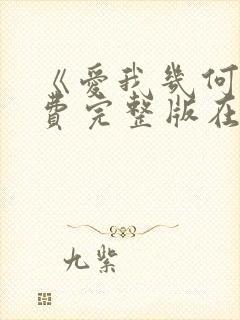 《爱我几何
费完整版在
九紫